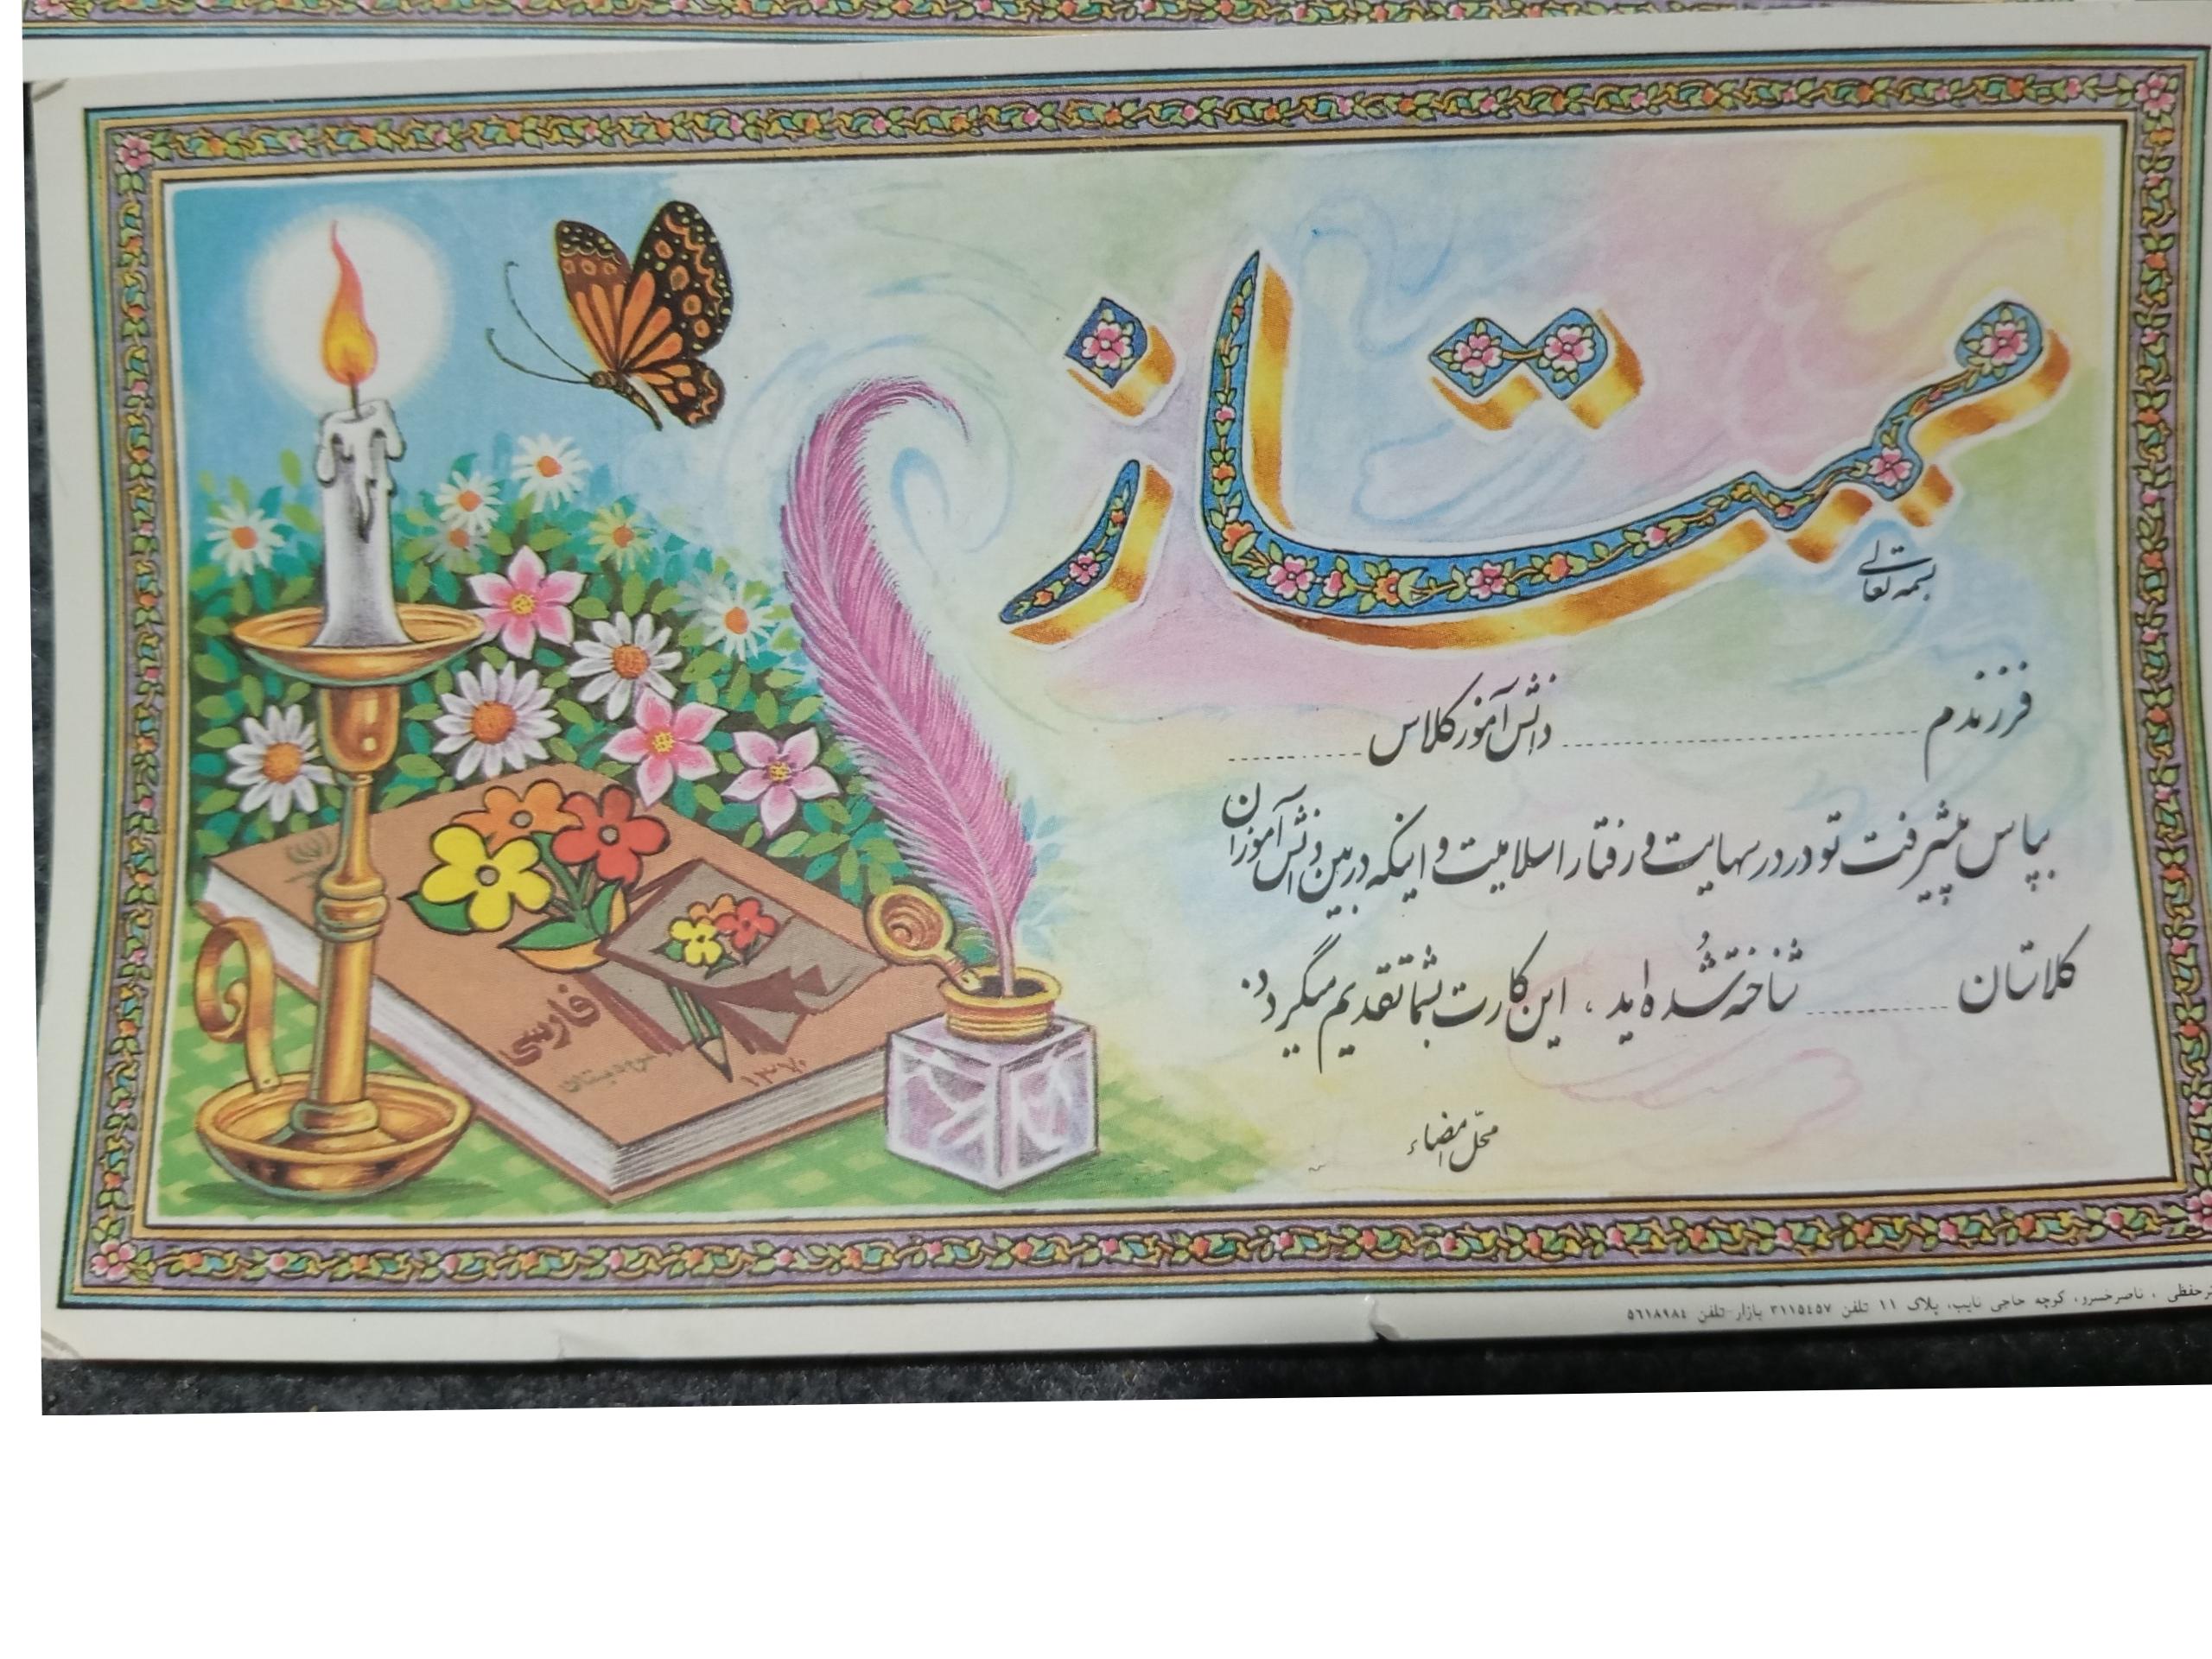 ممتاز
بسمه تعالی
فرزندم ........ دانش آموز کلاس ........
بپاس پیشرفت تو در درسهایت و رفتار اسلامیت و اینکه در بین دانش آموزان
کلاستان ........ شناخته شده اید ، این کارت بشما تقدیم میگردد.
محل امضاء
فارسی
دبستان
۱۳۷۰
حفظی ، ناصرخسرو، کوچه حاجی نایب، پلاک ۱۱ تلفن ۳۱۱۵٤٥۷ بازار-تلفن ٥٦۱۸۹۸٤